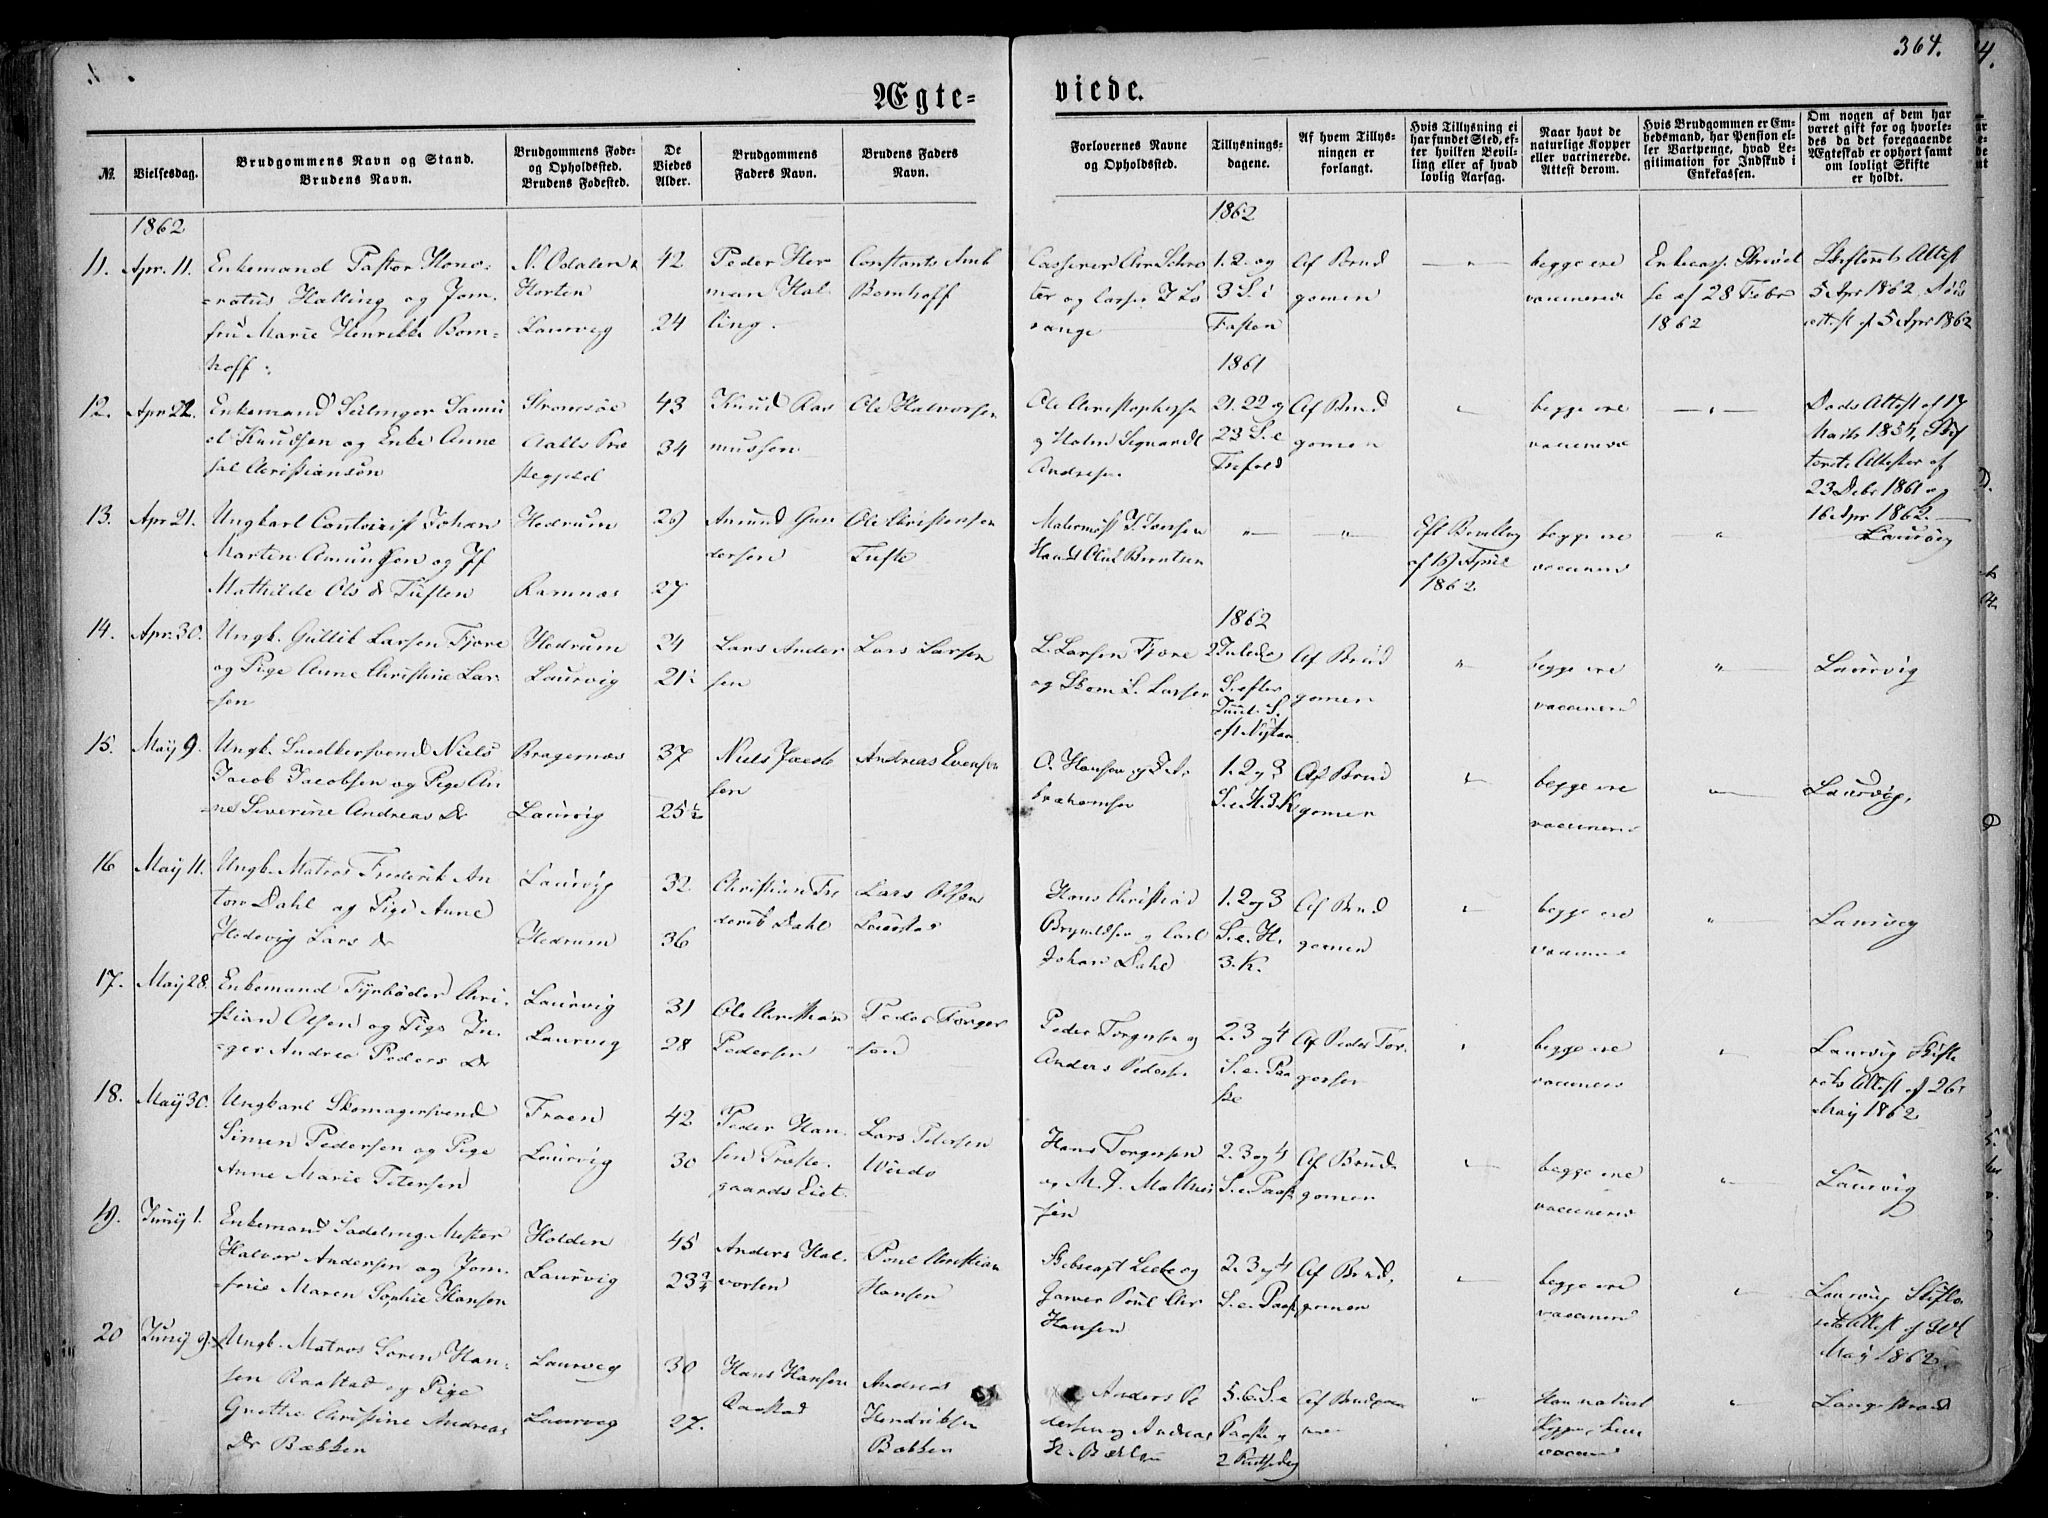 364.
Ægte-
viede.
№.
Vielsesdag.
Brudgommens Navn og Stand.
Brudens Navn.
Brudgommens Føde-
og Opholdssted.
Brudens Fødested.
De
Viedes
Alder.
Brudgommens
Faders Navn.
Brudens Faders
Navn.
Forlovernes Navne
og Opholdssted.
Tillysnings-
dagene.
Af hvem Tillys-
ningen er
forlangt.
Hvis Tillysning ei
har fundet Sted, ef-
ter hvilken Bevil-
ling eller af hvad
lovlig Aarsag.
Naar havt de
naturlige Kopper
eller vaccinerede.
Attest derom.
Hvis Brudgommen er Em-
bedsmand, har Pension el-
ler Vartpenge, hvad Le-
gitimation for Indskud i
Enkekassen.
Om nogen af dem har
været gift før og hvorle-
des da det foregaaende
Ægteskab er ophørt samt
om lovligt Skifte
er holdt.
1862
1862
11. Apr. 11.
Enkemand Pastor Hono-
=ratus Halling og Jom-
fru Marie Henrikke Bom-
hoff
N. Odalen
Horten
Laurvig
42
24
Peder Her
man Hal
ling.
Constants Amb
Bomhoff
1. 2. og
3 S. i
Fasten
Af Brud
gomen
begge ere
vaccinerede
se af 28 Febr
1862
Skifterets Attest
5 Apr 1862
attest af 5 Apr 1862
1861
12. Apr. 22.
Enkemand Samu
el Knudsen og Enke Anne
Christiansøn
Strømsøe
Præ
stegjeld
43
34
Knud Ras
mussen
Ole Halvorsen
Ole Christophersen
Andresen
21. 22 og
23 S. e
Trefold
Af Brud
gomen
begge ere
Døds Attest af 17
Skif
terets Attester af
23 Debr 1861 og
16 Apr 1862.
13. Apr 21.
Ungkarl Contorist Johan
Marten Amundsen og Jf
Mathilde Ols D Tuften
Hedrum
Ramnæs
29
27
Amund Gun
dersen
Ole Christensen
Tufte
Olul Berntsen
Eft Bevilling
af 19 April
1862
begge ere
Laurvig
1862
14. Apr. 30.
Ungk. Gullik Larsen Fjære
og Pige Anne Christine Lar-
sen
Hedrum
Laurvig
24
21
Lars Ander
sen
Lars Larsen
L. Larsen Fjære
og Skom L. Larsen
Af Brud
gomen
begge ere
Laurvig
15. May 9.
Ungk. Snedkersvend Niels
Jacob Jacobsen og Pige An-
=ne Severine Andreas Dr
Bragernæs
Laurvig
37
25 ½
Niels Jacob
sen
Andreas Evensen
1. 2 og 3
S. e. H. 3 K
Af Brud
gomen
begge ere
Laurvig,
16 May 11.
Ungk. Matros Frederik An
ton Dahl og Pige Anne
Hedevig Lars Dr
Laurvig
Hedrum
32
36
Christian Fre
derik Dahl
Lars Olsen
Hans Christian
og Carl
Johan Dahl
1. 2 og 3
S. e. H.
3. K.
Af Brud
gomen
begge ere
Laurvig
17. May 28.
Enkemand Fyrbøder Chri-
stian Olsen og Pige In-
=ger Andrea Peders Dr
Laurvig
Laurvig
31
28
Ole Christian
Pedersen
Peder Torger
sen
Peder Torgersen og
Anders Peders
2. 3 og 4
S. e. Paa
ske
Af Peder Tor-
gersen
begge ere
Laurvig Skifte
rets Attest af 26
May 1862
18. May 30.
Ungkarl Skomagersvend
Simen Pedersen og Pige
Anne Marie Petersen
Froen
Laurvig
42
30
Peder Han-
sen Præste-
gaards Eiet.
Lars Petersen
Hans Torgersen
og M. J. Mathie
sen
2. 3 og 4
S. e. Paask
Af Brud
gomen
begge ere
Laurvig
19. Juny 1.
Enkemand Sadelmag. Mester
Halvor Andersen og Jom-
frue Maren Sophie Hansen
Holden
Laurvig
45
23 ¾
Anders Hal-
vorsen
Poul Christian
Hansen
Skibscapt Liebe og
Garver Poul Chr
Hansen
2. 3 og 4
S. e. Paask
Af Brud,
gomen
begge ere
Laurvig Skifte
rets Attest af
May 1862.
20 Juny 9.
Ungk. Matros Søren Han-
sen Raastad og Pige
Grethe Christine Andreas
Dr Bækken
Laurvig
Laurvig
30
27.
Hans Hansen
Raastad
Andreas
Hendriksen
Bækken
Anders Pe
dersen og Andreas
H. Bækken
5. 6. S. e
Paaske og
2 Pintsedag
Af Brudgom
Han naturl
Kopper, hun
Langestrand